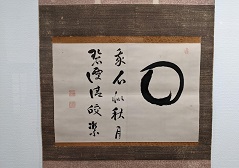 心似秋月
碧潭清皎潔